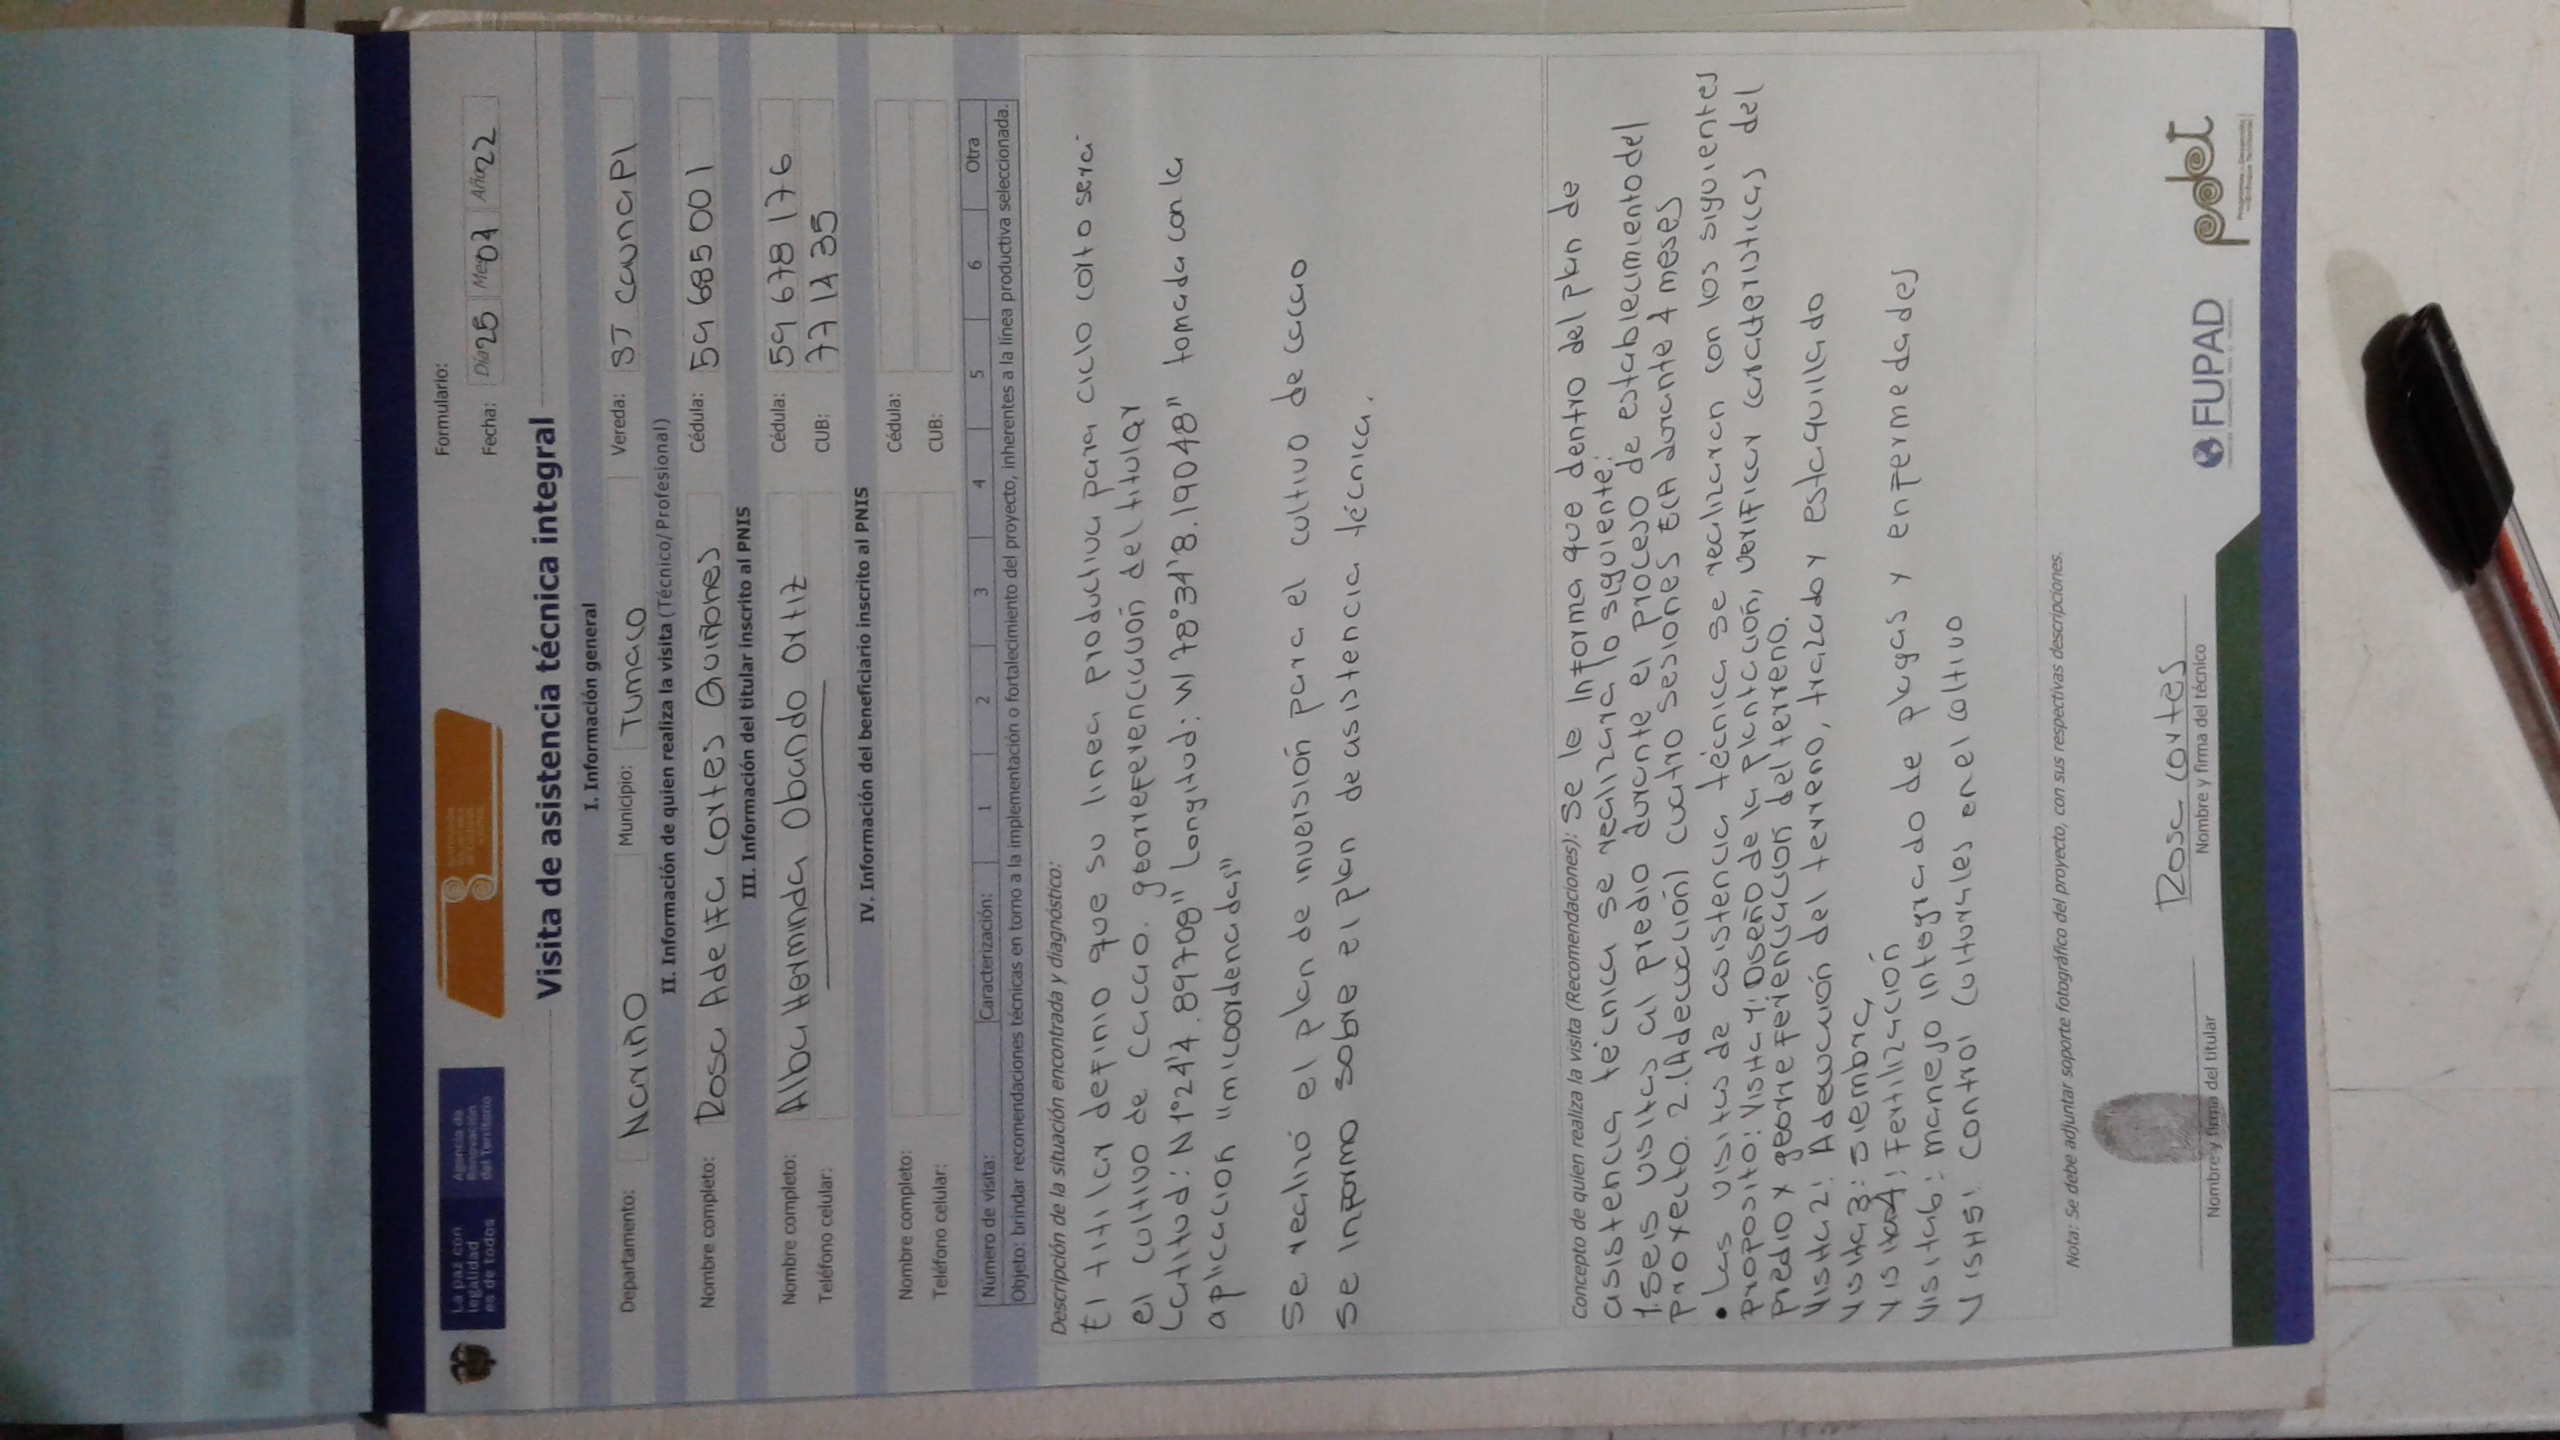 La paz con
legalidad
es de todos
Agencia de
Renovación
del Territorio
Formulario:
Fecha: Día 25 Mes 07 Año 22
Visita de asistencia técnica integral
I. Información general
Departamento: Nariño Municipio: Tumaco Vereda: ST CaunaPI
II. Información de quien realiza la visita (Técnico/ Profesional)
Nombre completo: Rosa Adelfa Cortes Quiñones Cédula: 59 685 001
III. Información del titular inscrito al PNIS
Nombre completo: Alba Herminda Obando Ortiz Cédula: 59 678 176
Teléfono celular: CUB: 77 14 35
IV. Información del beneficiario inscrito al PNIS
Nombre completo: Cédula:
Teléfono celular: CUB:
Número de visita: Caracterización: 1 2 3 4 5 6 Otra
Objeto: brindar recomendaciones técnicas en torno a la implementación o fortalecimiento del proyecto, inherentes a la línea productiva seleccionada.
Descripción de la situación encontrada y diagnóstico:
El titilar definio que su linea productiva para ciclo corto sera
el cultivo de cacao. georreferenciación del titular
Latitud: N 1°24'4.89708" Longitud: W 78°31'8.19048" tomada con la
aplicacion "micoordenadas"
Se realizó el plan de inversión para el cultivo de cacao
Se informo sobre el plan de asistencia técnica.
Concepto de quien realiza la visita (Recomendaciones): Se le informa que dentro del plan de
asistencia técnica se realizara lo siguiente:
1. Seis visitas al predio durante el proceso de establecimiento del
proyecto. 2. (Adecuación) cuatro sesiones ECA durante 4 meses
• Las visitas de asistencia técnica se realizaran con los siguientes
proposito: Visita 1: Diseño de la plantación, verificar caracteristicas del
predio y georreferenciacion del terreno.
Visita 2: Adecuación del terreno, trazado y estaquillado
Visita 3: Siembra
Visita 4: Fertilización
Visita 6: manejo integrado de plagas y enfermedades
Visita 5: Control Culturales en el cultivo
Nota: Se debe adjuntar soporte fotográfico del proyecto, con sus respectivas descripciones.
Rosa Cortes
Nombre y firma del titular Nombre y firma del técnico
FUPAD pdet